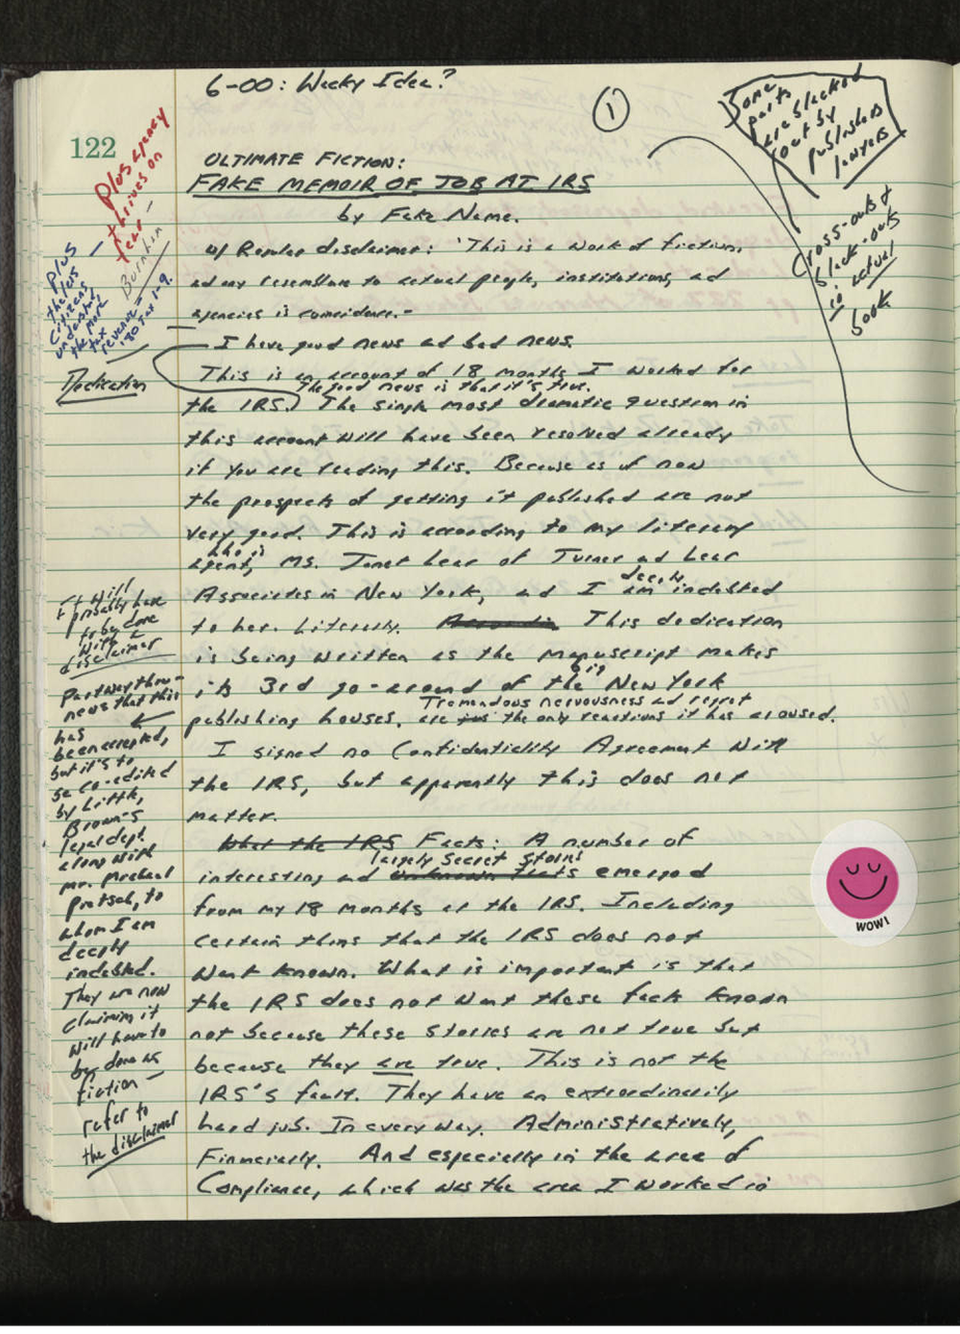 6-00: Wacky Idea?
①
Some
parts
are blacked
out by
publishers
lawyers
122
Plus agency
thrives on
fear —
ULTIMATE FICTION:
FAKE MEMOIR OF JOB AT IRS
by Fake Name.
Cross-outs &
black-outs
in actual
book
Plus —
the less
citizens
understand,
the more
tax
revenue —
w/ Regular disclaimer: 'This is a work of fiction,
any resemblance to actual people, institutions, and
agencies is coincidence.-
— I have good news and bad news.
Dedication
This is an account of 18 months I worked for
The good news is that it's true.
the IRS. The single most dramatic question in
this account will have been resolved already
if you are reading this. Because as of now
the prospects of getting it published are not
very good. This is according to my literary
who is
agent, Ms. Janet Lear of Turner and Lear
deeply
Associates in New York, and I am indebted
to her. Literally. This dedication
is being written as the manuscript makes
big
its 3rd go-around of the New York
Tremendous nervousness and regret
publishing houses. are just the only reactions it has aroused.
It will
probably have
to be done
with a
disclaimer
Partway thru—
news that this
has
been accepted,
but it's to
be co-edited
by Little,
Brown's
legal dept.
along with
Mr. Michael
Pietsch, to
whom I am
deeply
indebted.
They are now
claiming it
will have to
be done as
fiction —
refer to
the disclaimer
I signed no Confidentiality Agreement with
the IRS, but apparently this does not
matter.
What the IRS Facts: A number of
largely secret stories
interesting and unknown facts emerged
from my 18 months at the IRS. Including
certain things that the IRS does not
want known. What is important is that
the IRS does not want these facts known
not because these stories are not true but
because they are true. This is not the
IRS's fault. They have an extraordinarily
hard job. In every way. Administratively,
Financially. And especially in the area of
Compliance, which was the area I worked in
WOW!